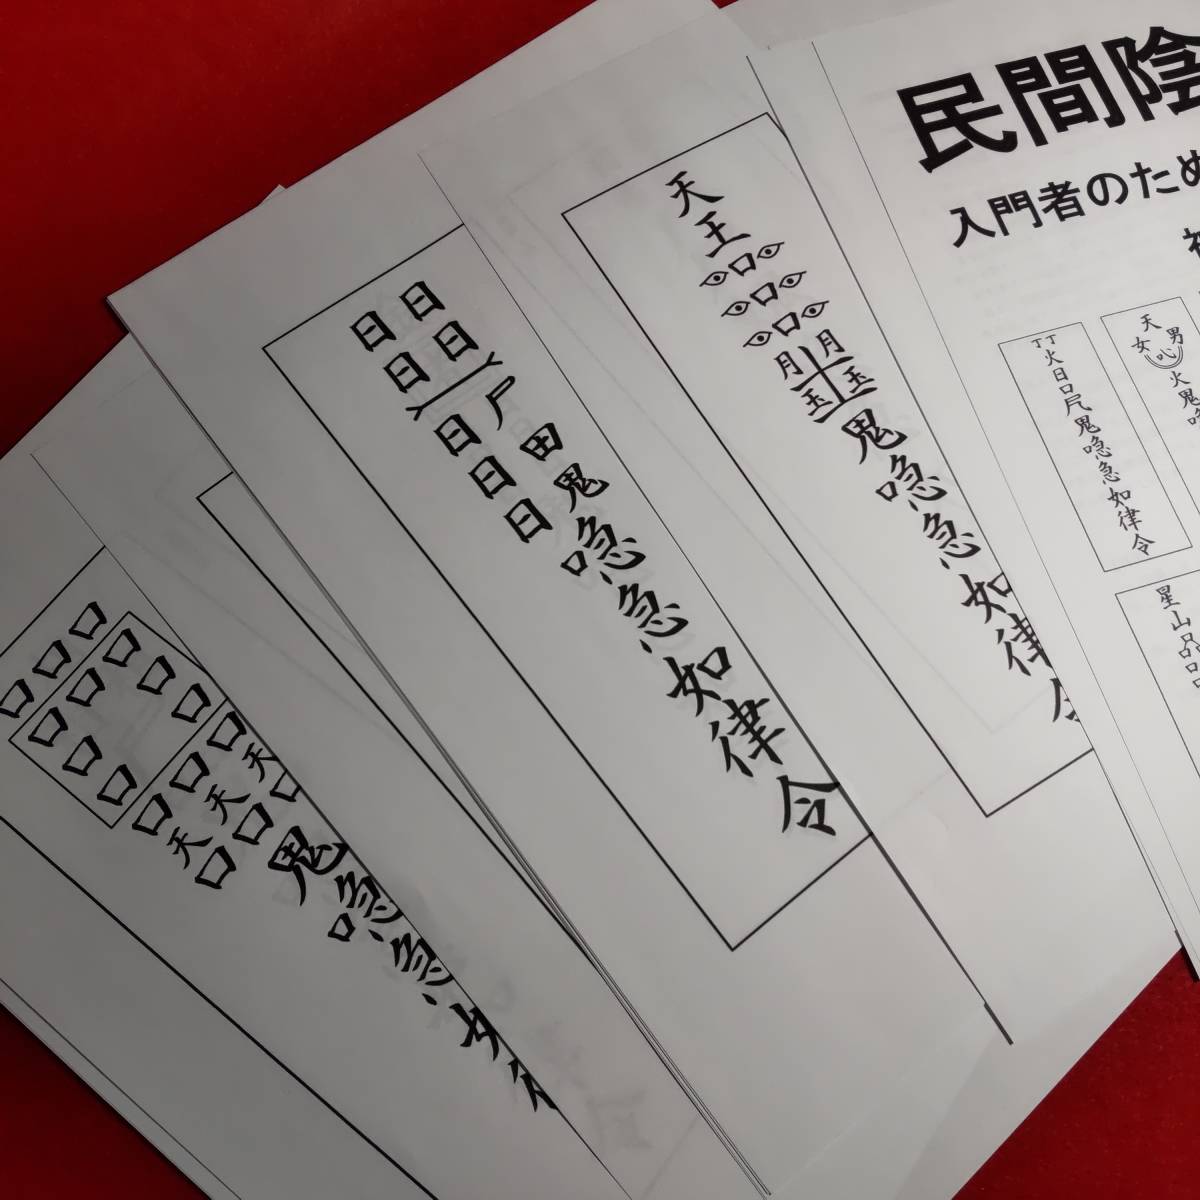 民間陰
入門者のため
丁丁
火日口尸鬼喼急如律令
天
女男
心
火鬼喼
星山品
天王
口
口
口
月月
玉玉
鬼喼急如律令
日日
日日
尸田鬼喼急如律令
日
日
日
口口口
口口口
口口
口口
口口口
天天天
口口口
鬼喼急如